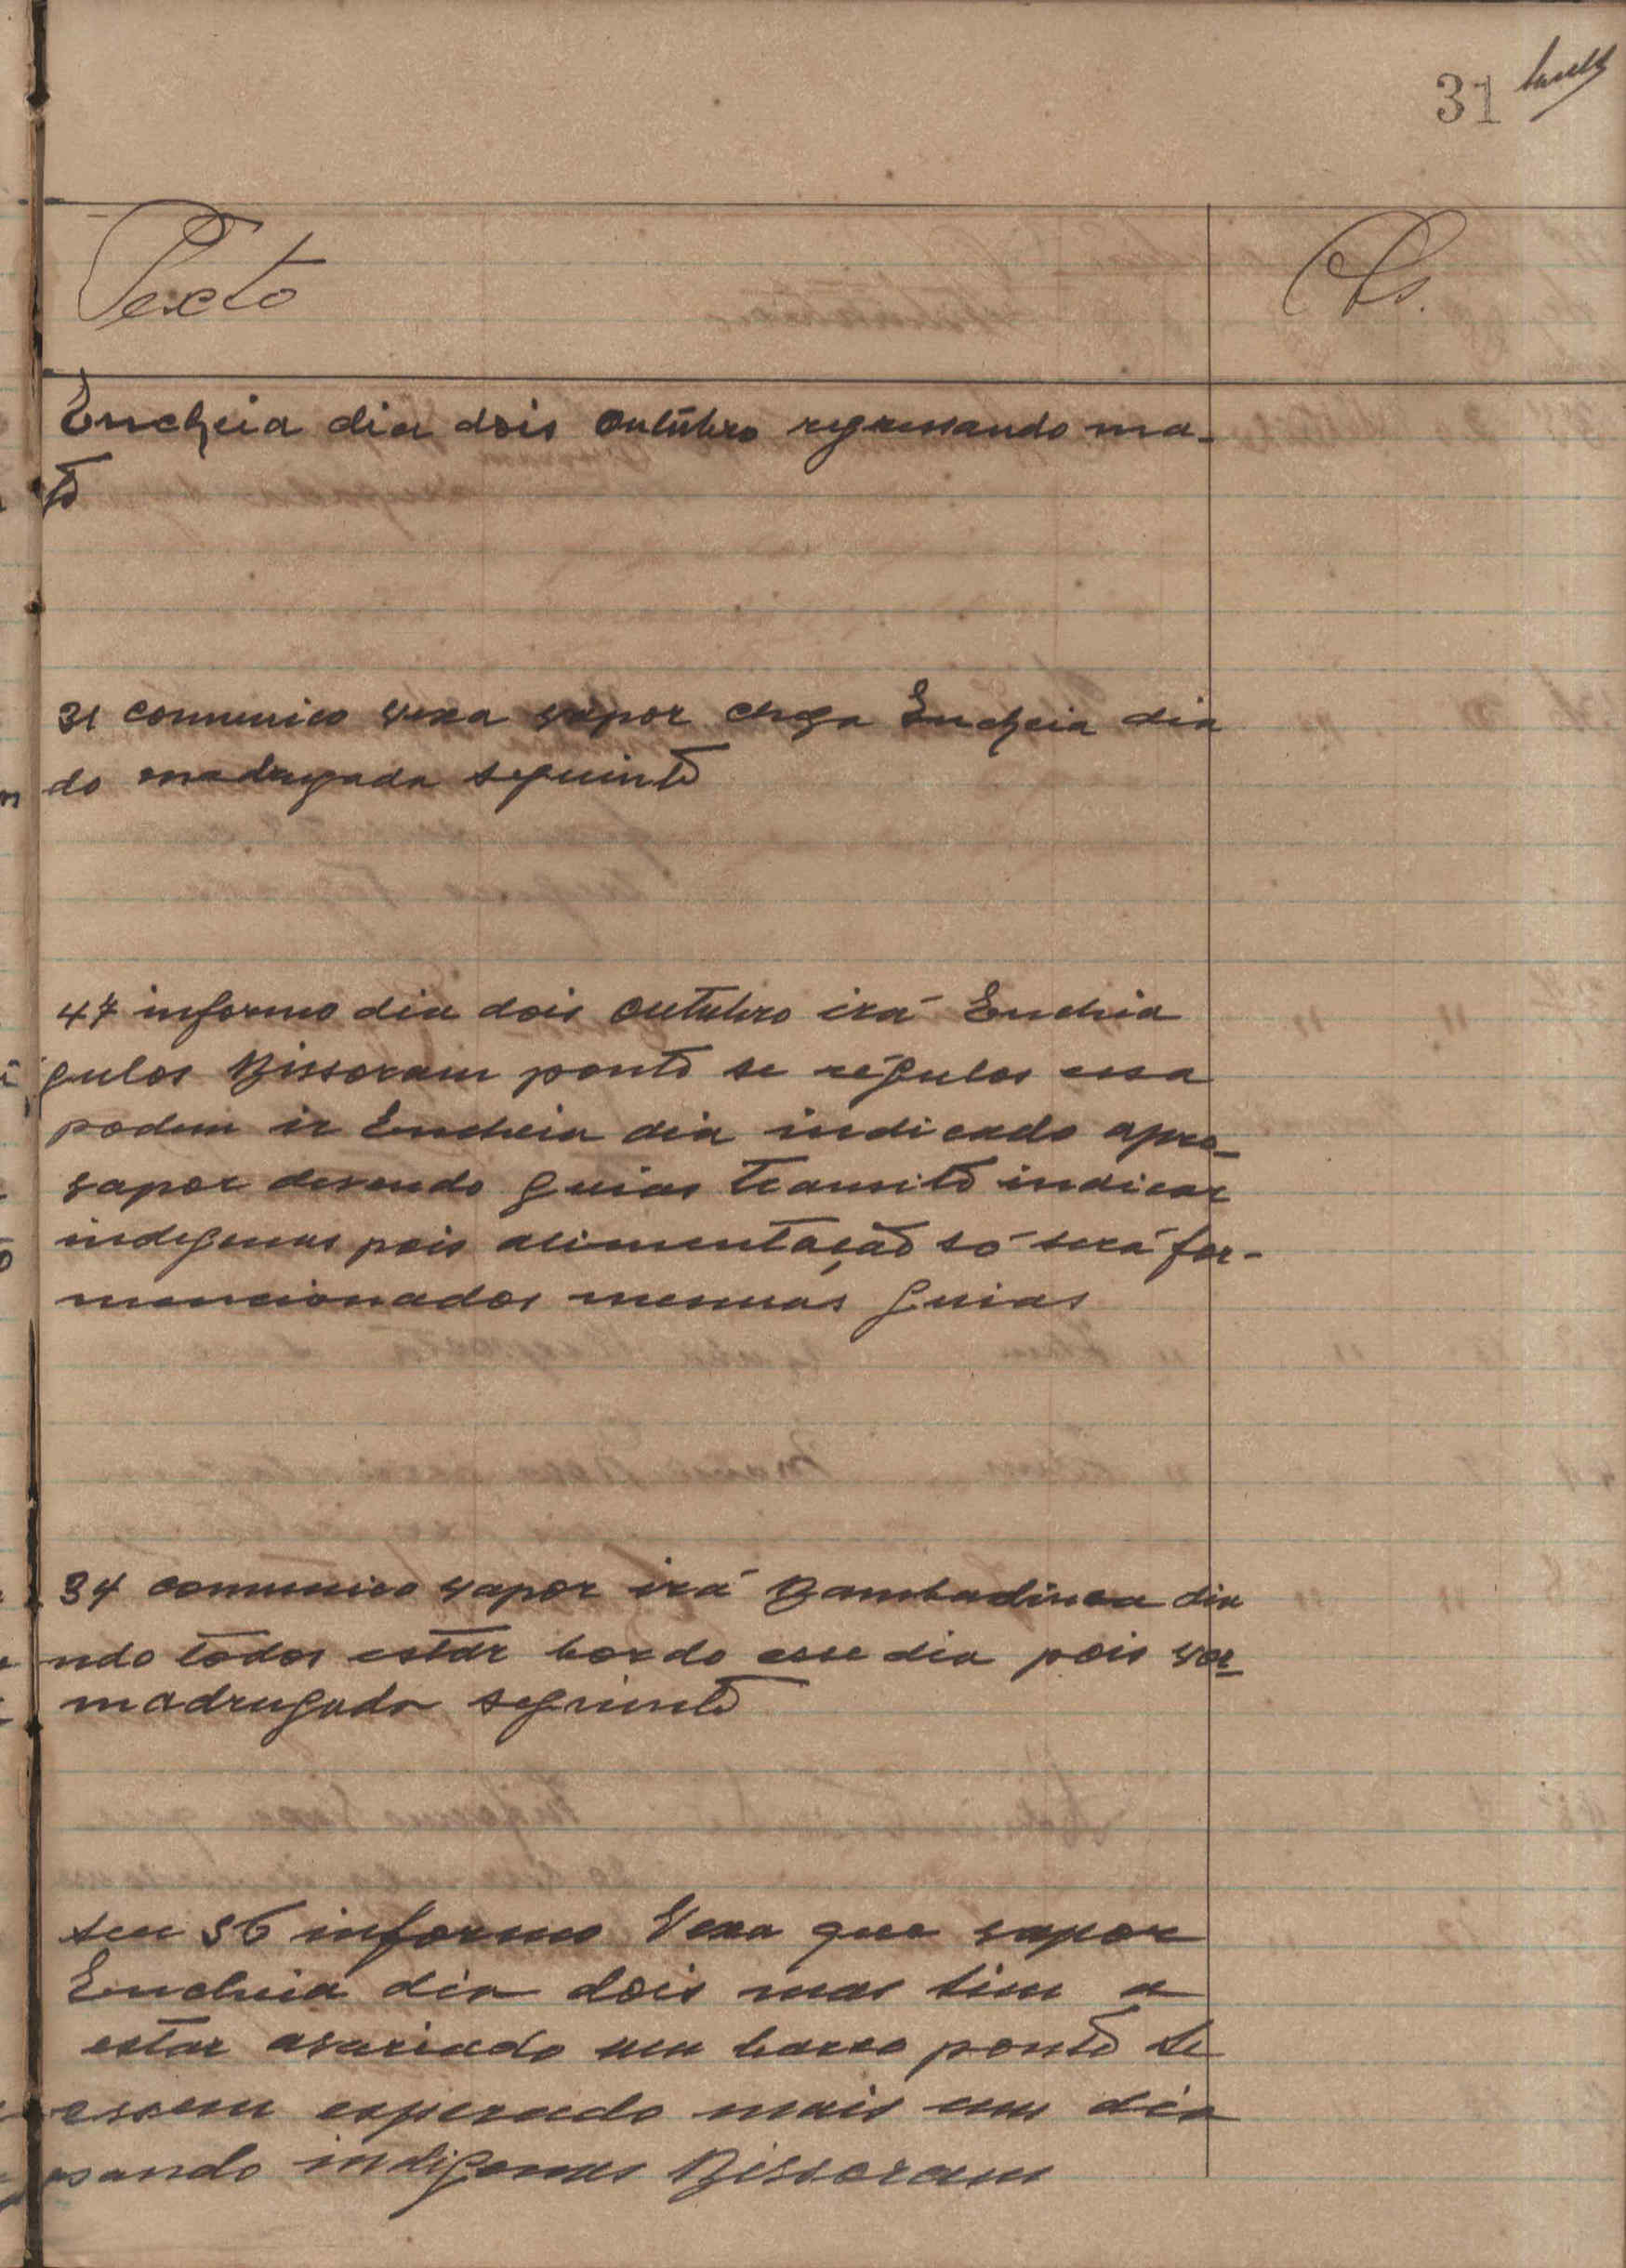 31
Texto
Obs.
Encheia dia dois outubro regressando ma-
to
31 comunico vexa vapor chega Encheia dia
do madrugada seguinte
47 informo dia dois outubro irá Encheia
gulos Bissoram ponto se régulos essa
podem ir Encheia dia indicado apro-
vapor devendo guias transito indicar
indegenas pois alimentação só será for-
mencionados mesmas guias
34 comunico vapor irá Bambadinca dia
ndo todos estar bordo esse dia pois vor-
madrugada seguinte
seu 36 informo Vexa que vapor
Encheia dia dois mas sim a
estar avariado um barco ponto Se
essem esperado mais um dia
sando indigenas Bissoram